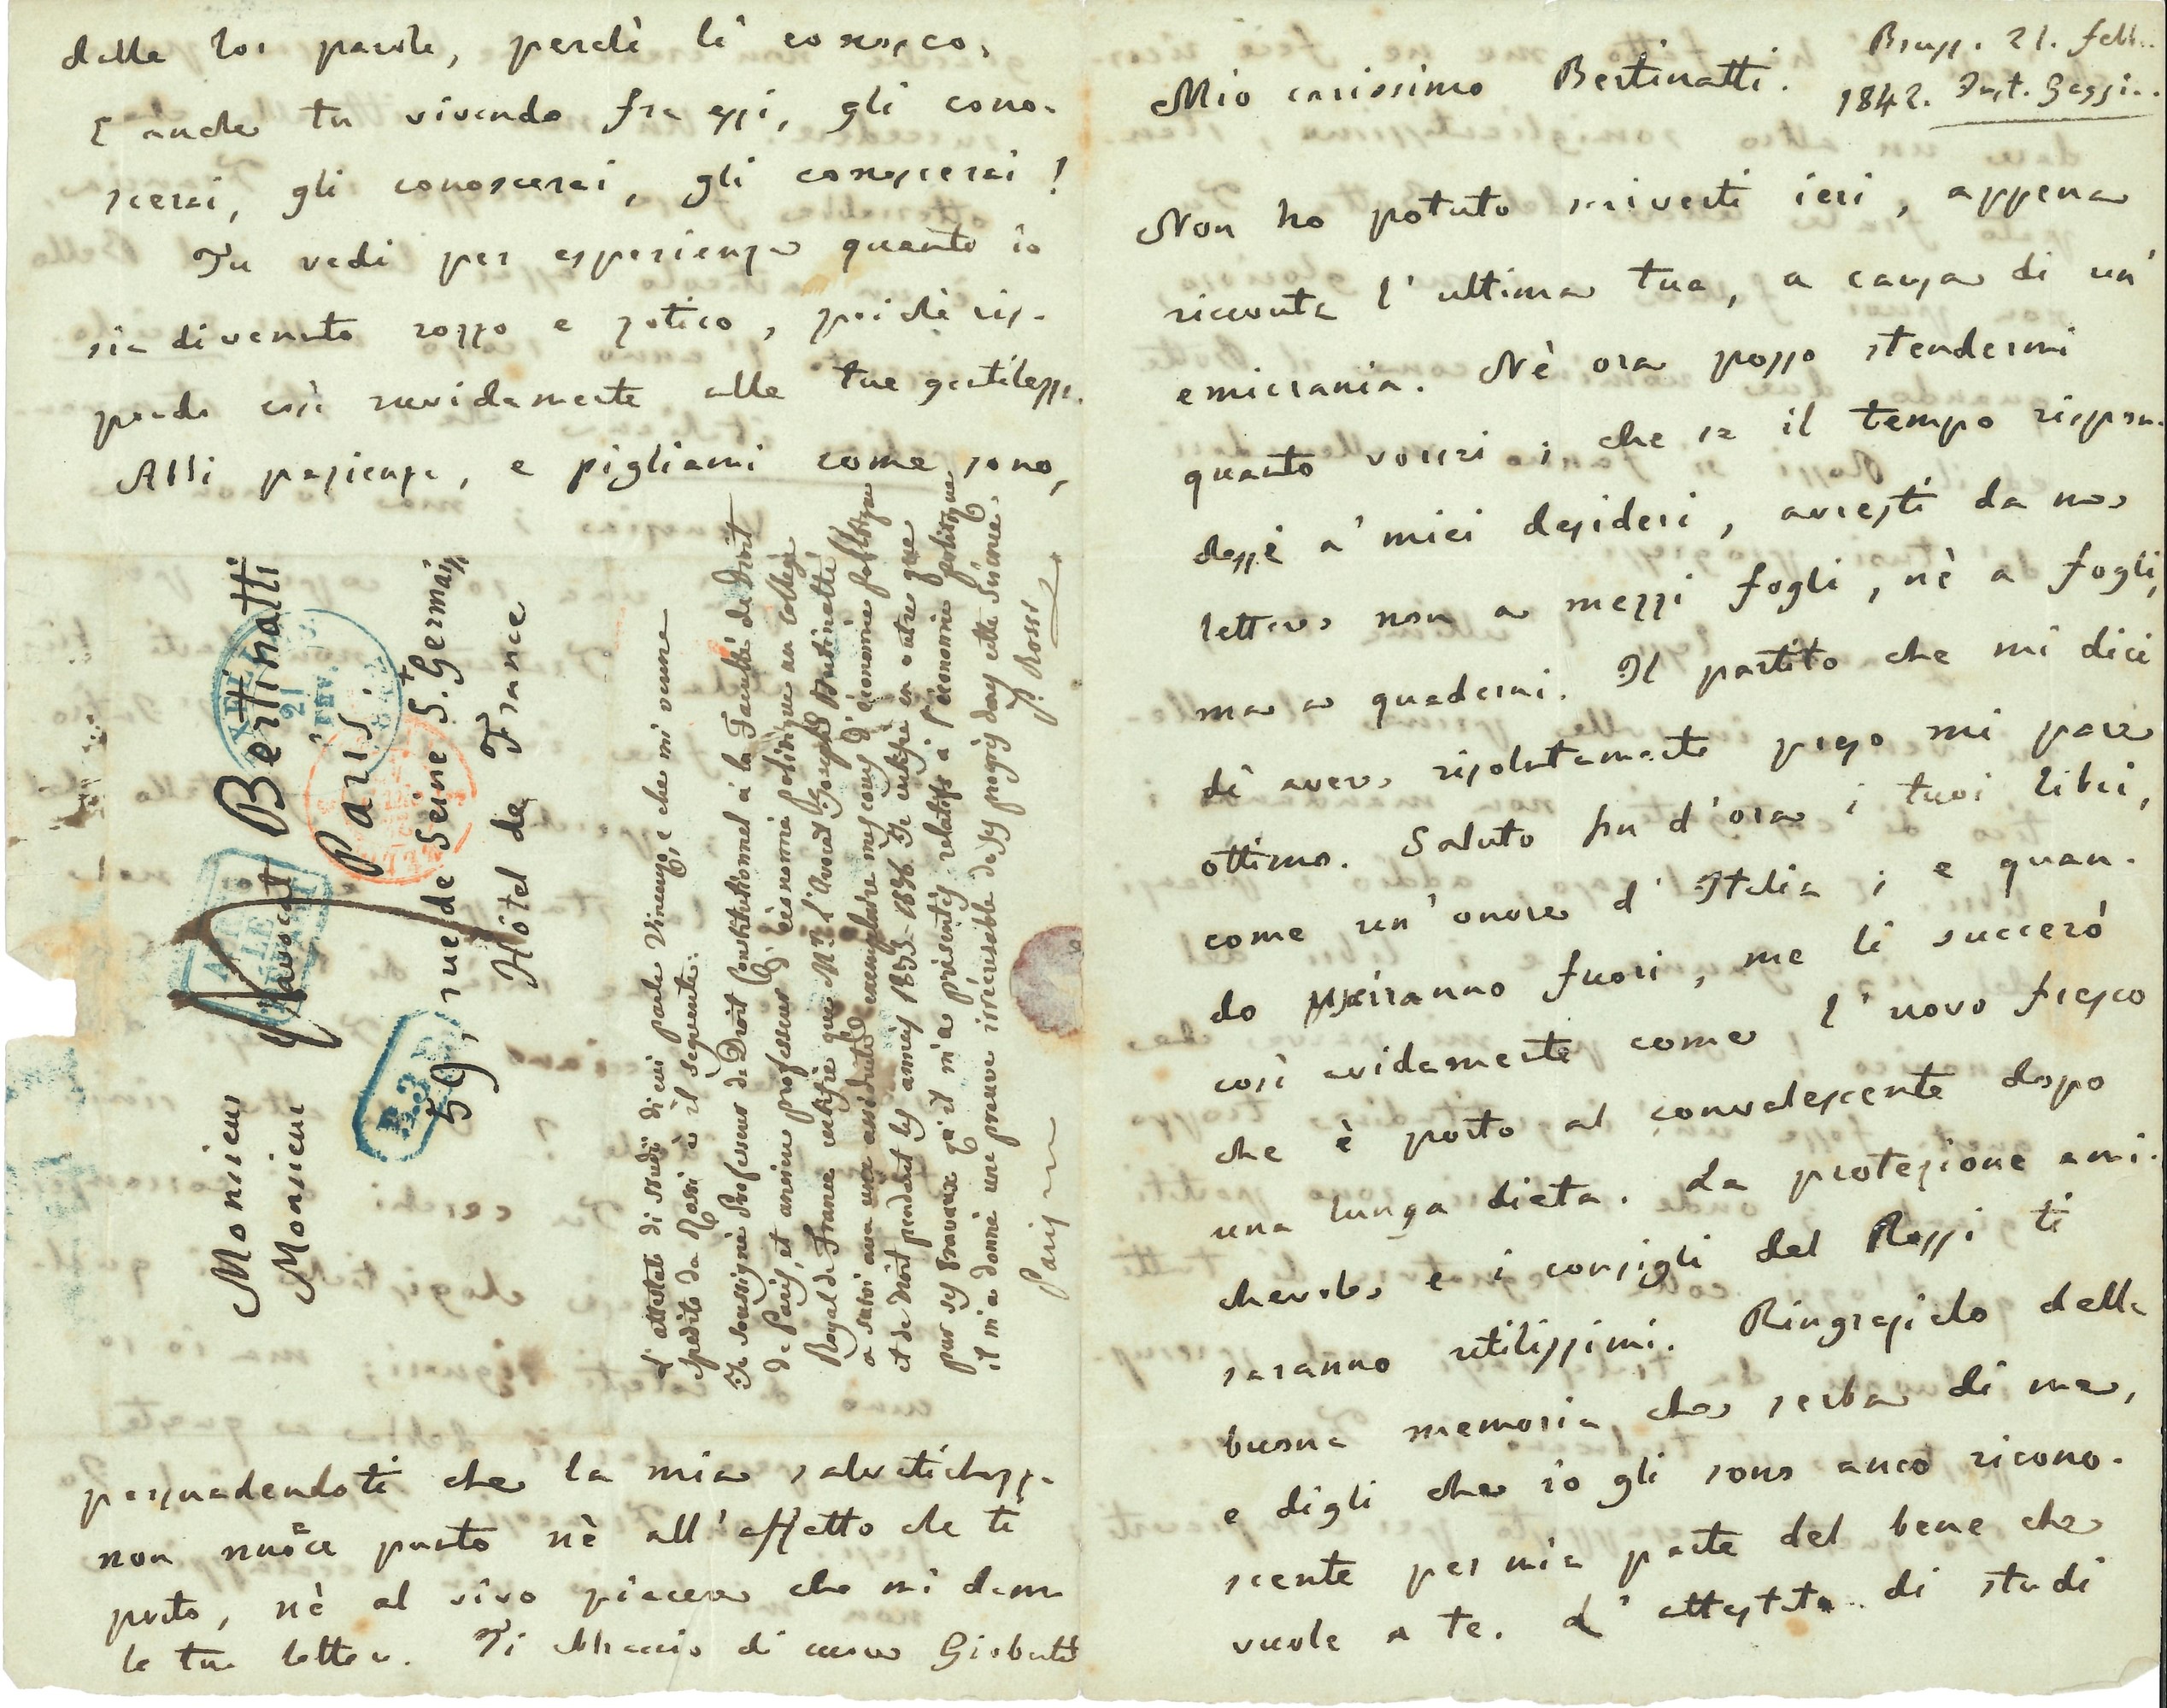 Bruss. 21. febb.
1842. Inst. Gaggia.
Mio carissimo Bertinatti.
Non ho potuto scriverti ieri, appena
ricevuta l'ultima tua, a causa di un'
emicrania. Nè ora posso stendermi
quanto vorrei; che se il tempo rispon-
desse a' miei desideri, avresti da me
lettere non a mezzi fogli, nè a fogli,
ma a quaderni. Il partito che mi dici
di avere risolutamente preso mi pare
ottimo. Saluto fin d'ora i tuoi libri,
come un' onore d'Italia; e quan-
do usciranno fuori, me li succerò
così avidamente come l'uovo fresco
che è porto al convalescente dopo
una lunga dieta. La protezione ami-
chevole e i consigli del Rossi ti
saranno utilissimi. Ringrazialo della
buona memoria che serba di me,
e digli che io gli sono anco ricono-
scente per mia parte del bene che
vuole a te. L'attestato di studi
delle lor parole, perchè li conosco,
E anche tu vivendo fra essi, gli cono-
scerai, gli conoscerai, gli conoscerai!
Tu vedi per esperienza quanto io
sia divenuto rozzo e zotico, poichè ris-
pondo così ruvidamente alle tue gentilezze.
Abbi pazienza, e pigliami come sono,
persuadendoti che la mia salvatichezza
non nuoce punto nè all'affetto che ti
porto, nè al vivo piacere che mi danno
le tue lettere. Ti abbraccio di cuore Gioberti
Monsieur
Monsieur l'avocat Bertinatti
Paris
59, rue de Seine St. Germain
Hôtel de France
21
FEV.
L'attestato di studii di cui parla Vincenzo, e che mi venne
spedito da Rossi è il seguente:
Je soussigné Professeur de Droit Constitutionnel à la Faculté de Droit
de Paris, et ancien professeur d'économie politique au Collège
Royal de France certifie que Mr. l'Avocat Joseph Bertinatti
a suivi avec une assiduité exemplaire mes cours d'économie politique
et de droit pendant les années 1835-1836. Je certifie en outre que
par ses travaux qu'il m'a présentés relatifs à l'économie politique
il m'a donné une preuve irrécusable de ses progrès dans cette science.
Paris
P. Rossi